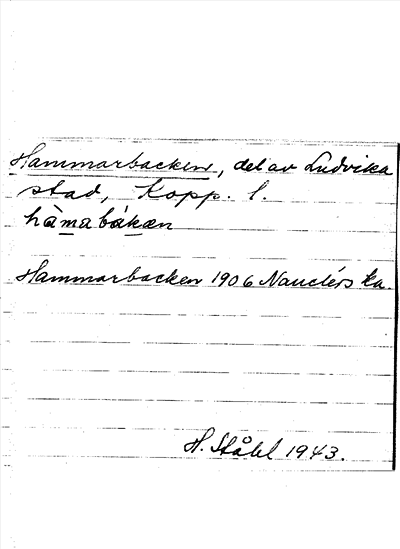 Hammarbacken, del av Ludvika
stad, Kopp. l.
hàmabákæn
Hammarbacken 1906 Nauclérs ka.
H. Ståhl 1943.